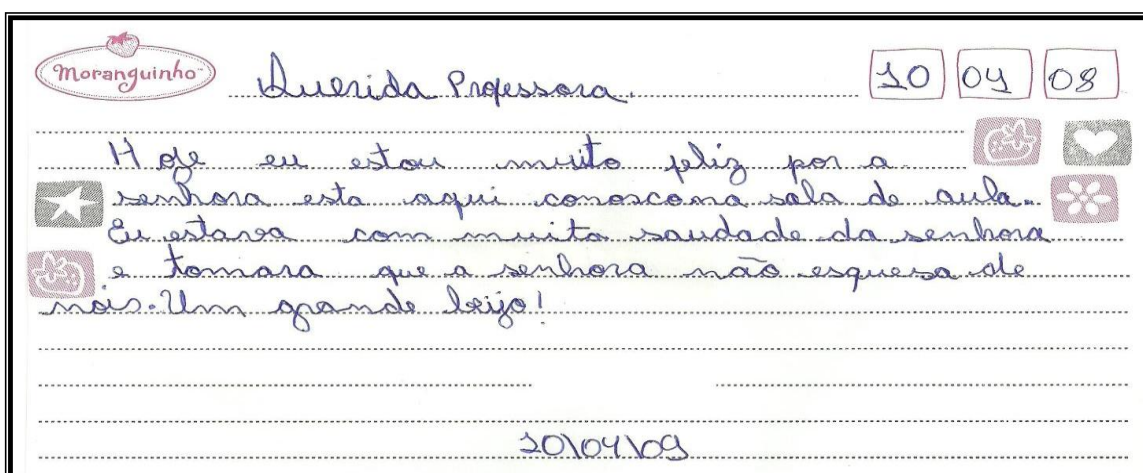 Moranguinho Querida Professora. 10 04 08
Hoje eu estou muito feliz por a
senhora esta aqui conoscona sala de aula.
Eu estava com muita saudade da senhora
e tomara que a senhora não esquesa de
nois. Um grande beijo!
20\04\09